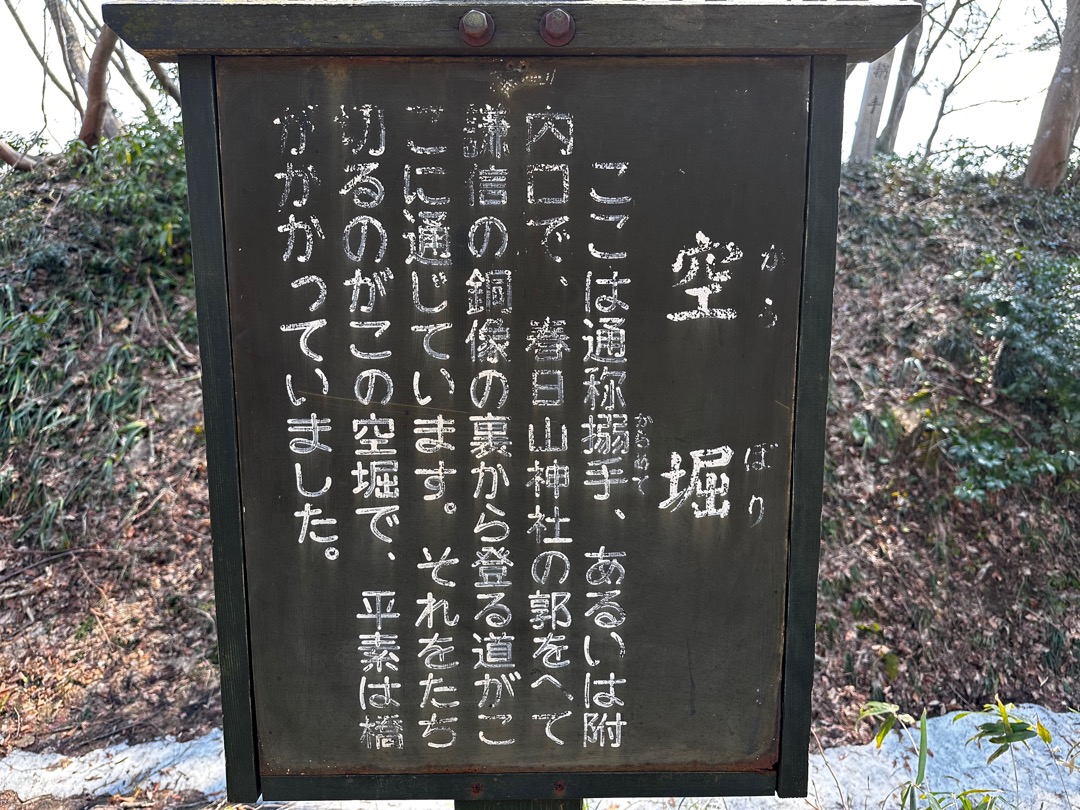 空堀
からぼり
ここは通称搦手、あるいは附
からめて
内口で、春日山神社の郭をへて
謙信の銅像の裏から登る道がこ
こに通じています。それをたち
切るのがこの空堀で、平素は橋
がかかっていました。